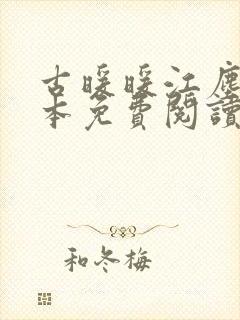 古暖暖江塵
本免費閱讀
和冬梅